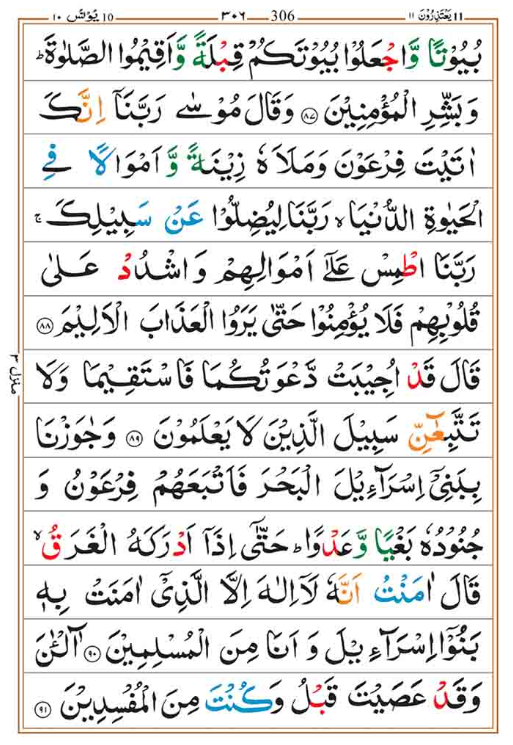 11 يَعْتَذِرُوْنَ ١١ ٣٠٦ 306 10 يُوْنُس ١٠
بُيُوْتًا وَّاجْعَلُوْا بُيُوْتَكُمْ قِبْلَةً وَّاَقِيْمُوا الصَّلٰوةَ ؕ
وَبَشِّرِ الْمُؤْمِنِيْنَ ﴿۸۷﴾ وَقَالَ مُوْسٰى رَبَّنَاۤ اِنَّكَ
اٰتَيْتَ فِرْعَوْنَ وَمَلَاَهٗ زِيْنَةً وَّ اَمْوَالًا فِى
الْحَيٰوةِ الدُّنْيَا ۙ رَبَّنَا لِيُضِلُّوْا عَنْ سَبِيْلِكَ ۚ
رَبَّنَا اطْمِسْ عَلٰٓى اَمْوَالِهِمْ وَاشْدُدْ عَلٰى
قُلُوْبِهِمْ فَلَا يُؤْمِنُوْا حَتّٰى يَرَوُا الْعَذَابَ الْاَلِيْمَ ﴿۸۸﴾
قَالَ قَدْ اُجِيْبَتْ دَّعْوَتُكُمَا فَاسْتَقِيْمَا وَلَا
تَتَّبِعٰٓنِّ سَبِيْلَ الَّذِيْنَ لَا يَعْلَمُوْنَ ﴿۸۹﴾ وَجٰوَزْنَا
بِبَنِىْۤ اِسْرَآءِيْلَ الْبَحْرَ فَاَتْبَعَهُمْ فِرْعَوْنُ وَ
جُنُوْدُهٗ بَغْيًا وَّعَدْوًا ؕ حَتّٰۤى اِذَاۤ اَدْرَكَهُ الْغَرَقُ ۙ
قَالَ اٰمَنْتُ اَنَّهٗ لَاۤ اِلٰهَ اِلَّا الَّذِىْۤ اٰمَنَتْ بِهٖ
بَنُوْۤا اِسْرَآءِيْلَ وَ اَنَا مِنَ الْمُسْلِمِيْنَ ﴿۹۰﴾ آٰلْـٰٔنَ
وَقَدْ عَصَيْتَ قَبْلُ وَكُنْتَ مِنَ الْمُفْسِدِيْنَ ﴿۹۱﴾
منزل ٣